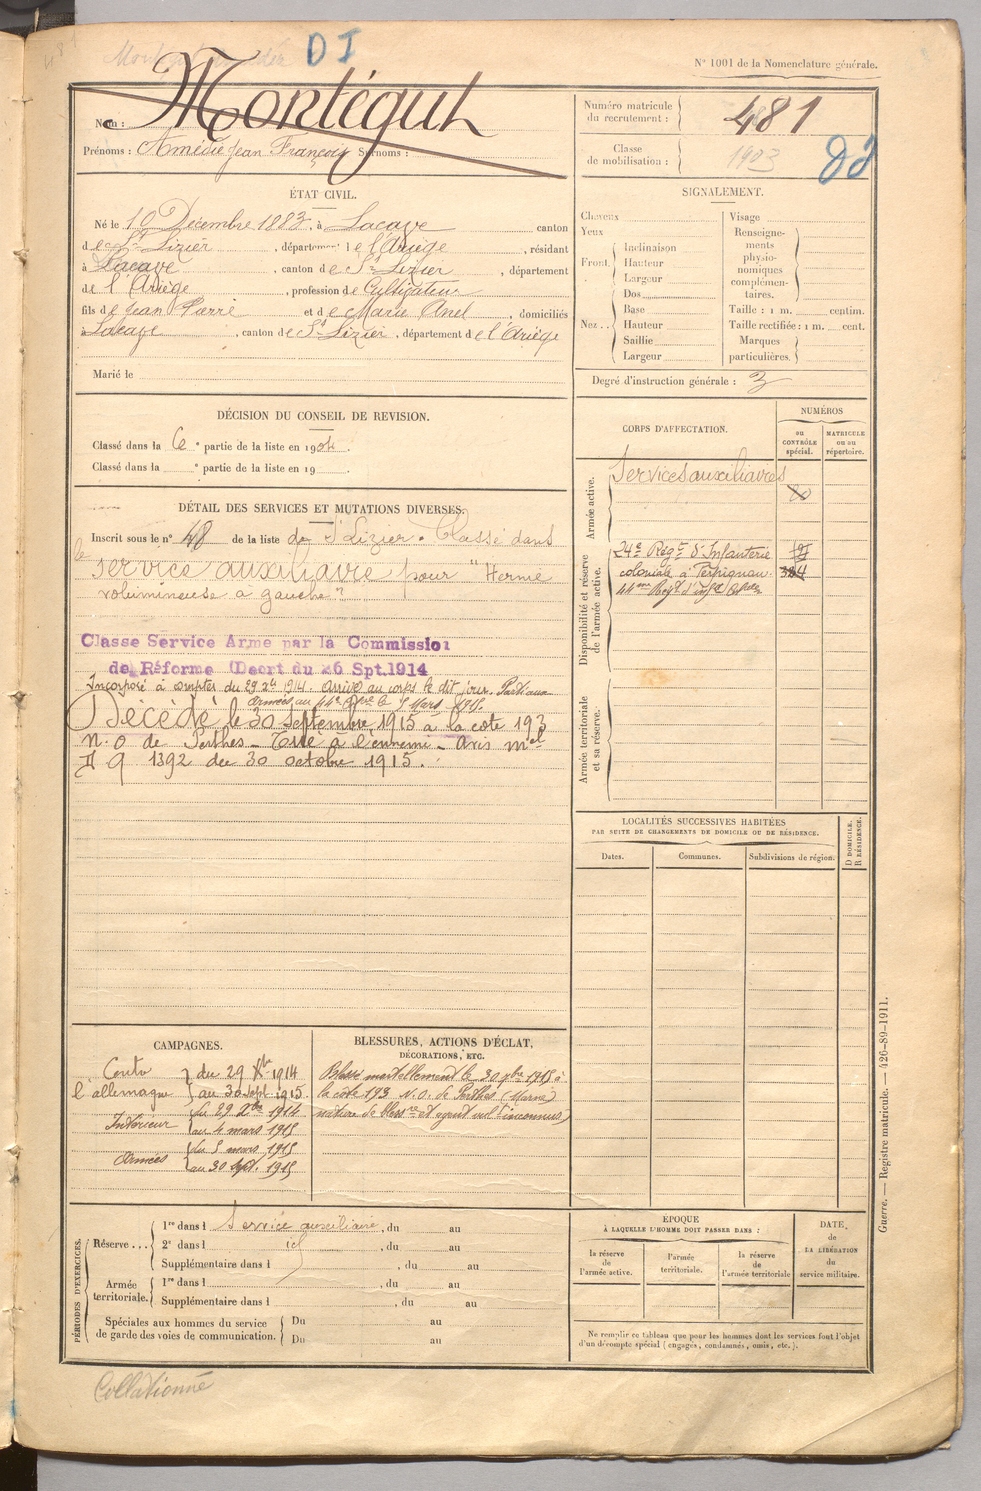 DI
N° 1001 de la Nomenclature générale.
Nom : Montégut
Prénoms : Amédée Jean François Surnoms :
Numéro matricule du recrutement : 481
Classe de mobilisation : 1903
ÉTAT CIVIL.
Né le 10 Décembre 1883, à Lacave canton
de St Lizier, département de l'Ariège, résidant
à Lacave, canton de St Lizier, département
de l'Ariège, profession de Cultivateur
fils de Jean Pierre et de Marie Anel, domiciliés
à Lacave, canton de St Lizier, département de l'Ariège
Marié le
SIGNALEMENT.
Cheveux
Yeux
Front. Inclinaison
Hauteur
Largeur
Nez .. Dos
Base
Hauteur
Saillie
Largeur
Visage
Renseignements physionomiques complémentaires.
Taille : 1 m. centim.
Taille rectifiée : 1 m. cent.
Marques particulières.
Degré d'instruction générale : 3
DÉCISION DU CONSEIL DE REVISION.
Classé dans la 6e partie de la liste en 1904.
Classé dans la e partie de la liste en 19
DÉTAIL DES SERVICES ET MUTATIONS DIVERSES.
Inscrit sous le n° 48 de la liste de St Lizier. Classé dans
le service auxiliaire pour "Hernie
volumineuse à gauche"
Classe Service Arme par la Commission
de Réforme (Decrt du 26 Spt.1914
Incorporé à compter du 29 Xbre 1914. Arrivé au corps le dit jour. Parti aux
armées au 44e le 5 Mars 1915.
Décédé le 30 septembre 1915 à la cote 193
N.O de Perthes - Tué à l'ennemi - Avis mel
1392 du 30 octobre 1915.
CORPS D'AFFECTATION.
NUMÉROS
au CONTRÔLE spécial.
MATRICULE ou au répertoire.
Armée active.
Services auxiliaires
Disponibilité et réserve de l'armée active.
24e Régt d'Infanterie
coloniale à Perpignan.
44me Regt d'infie colle
Armée territoriale et sa réserve.
LOCALITÉS SUCCESSIVES HABITÉES
PAR SUITE DE CHANGEMENTS DE DOMICILE OU DE RÉSIDENCE.
Dates.
Communes.
Subdivisions de région.
D DOMICILE.
R RÉSIDENCE.
CAMPAGNES.
Contre l'allemagne du 29 Xbre 1914
au 30 Sept 1915
Intérieur du 29 Xbre 1914
au 4 mars 1915
Armées du 5 mars 1915
au 30 Sept. 1915
BLESSURES, ACTIONS D'ÉCLAT,
DÉCORATIONS, ETC.
Blessé mortellement le 30 7bre 1915 à
la côte 193 N.O. de Perthes (Marne)
nature de blessre et agent vulnt inconnus
PÉRIODES D'EXERCICES.
Réserve ... 1re dans l Service auxiliaire, du au
2e dans l id, du au
Supplémentaire dans l , du au
Armée territoriale. 1re dans l , du au
Supplémentaire dans l , du au
Spéciales aux hommes du service de garde des voies de communication. Du au
Du au
EPOQUE
À LAQUELLE L'HOMME DOIT PASSER DANS :
la réserve de l'armée active.
l'armée territoriale.
la réserve de l'armée territoriale
DATE, de LA LIBÉRATION du service militaire.
Ne remplir ce tableau que pour les hommes dont les services font l'objet
d'un décompte spécial (engagés, condamnés, omis, etc.).
Guerre. — Registre matricule. — 426-89-1911.
Collationné